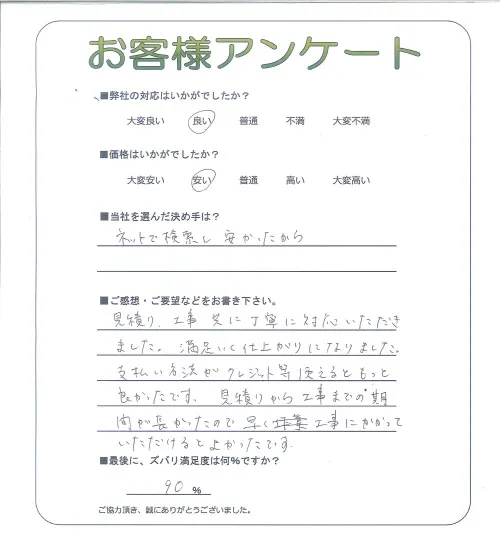 お客様アンケート
■弊社の対応はいかがでしたか？
大変良い 良い 普通 不満 大変不満
■価格はいかがでしたか？
大変安い 安い 普通 高い 大変高い
■当社を選んだ決め手は？
ネットで検索し 安かったから
■ご感想・ご要望などをお書き下さい。
見積り、工事 共に丁寧に対応いただき
ました。満足いく仕上がりになりました。
支払い方法が クレジット等 使えるともっと
良かったです。見積りから工事までの期
間が長かったので 早く 工事にかかって
いただけるとよかったです。
■最後に、ズバリ満足度は何％ですか？
90 %
ご協力頂き、誠にありがとうございました。